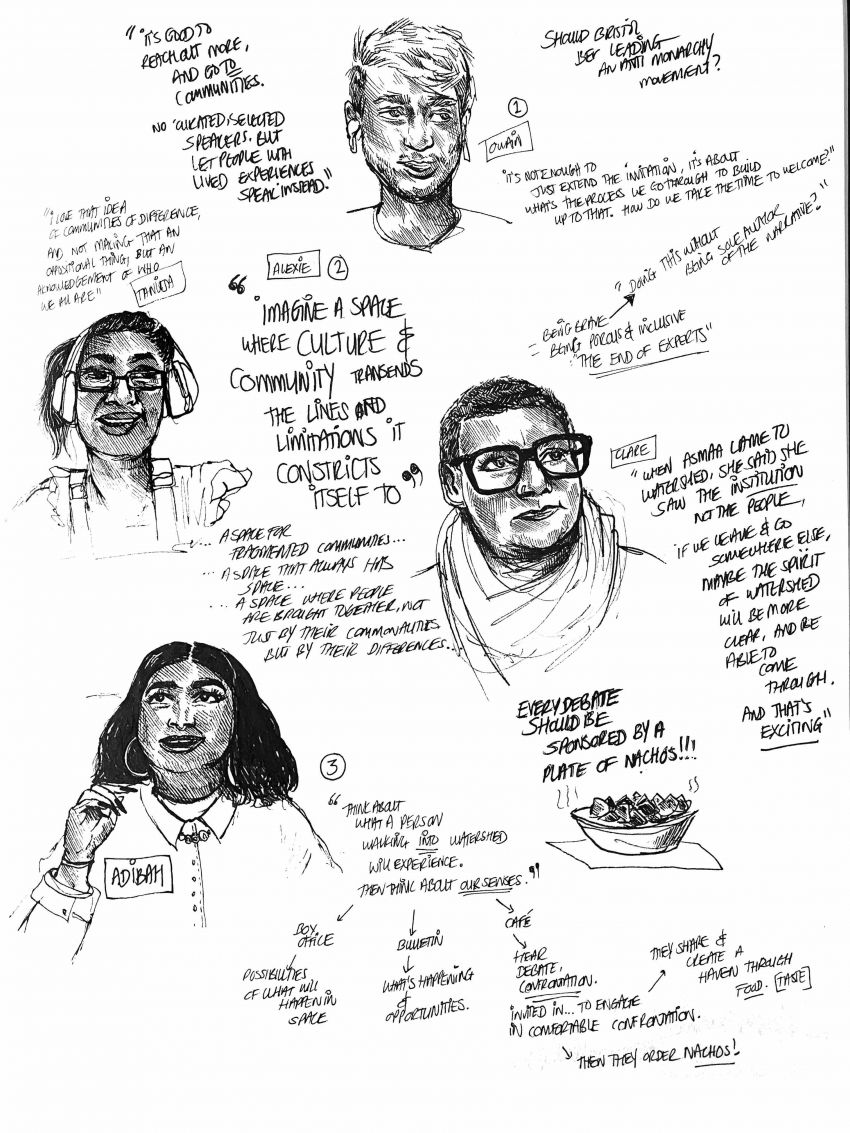 "IT'S GOOD TO
REACH OUT MORE,
AND GO TO
COMMUNITIES.
NO 'CURATED/SELECTED
SPEAKERS. BUT
LET PEOPLE WITH
LIVED EXPERIENCES
SPEAK INSTEAD."
SHOULD BRISTOL
BE LEADING
AN ANTI MONARCHY
MOVEMENT?
1
OWAIN
"IT'S NOT ENOUGH TO
JUST EXTEND THE INVITATION, IT'S ABOUT
WHAT'S THE PROCESS WE GO THROUGH TO BUILD
UP TO THAT. HOW DO WE TAKE THE TIME TO WELCOME?"
"I LOVE THAT IDEA
OF COMMUNITIES OF DIFFERENCE,
AND NOT MAKING THAT AN
OPPOSITIONAL THING, BUT AN
ACKNOWLEDGEMENT OF WHO
WE ALL ARE"
TANUJA
ALEXIE
2
"IMAGINE A SPACE
WHERE CULTURE &
COMMUNITY TRANSENDS
THE LINES AND
LIMITATIONS IT
CONSTRICTS
ITSELF TO"
... A SPACE FOR
FRAGMENTED COMMUNITIES...
... A SPACE THAT ALWAYS HAS
SPACE...
... A SPACE WHERE PEOPLE
ARE BROUGHT TOGETHER, NOT
JUST BY THEIR COMMONALITIES
BUT BY THEIR DIFFERENCES...
"DOING THIS WITHOUT
BEING SOLE AUTHOR
OF THE NARRATIVE?"
- BEING BRAVE
- BEING POROUS & INCLUSIVE
- "THE END OF EXPERTS"
CLARE
"WHEN ASMAA CAME TO
WATERSHED, SHE SAID SHE
SAW THE INSTITUTION
NOT THE PEOPLE,
IF WE LEAVE & GO
SOMEWHERE ELSE,
MAYBE THE SPIRIT
OF WATERSHED
WILL BE MORE
CLEAR, AND BE
ABLE TO
COME
THROUGH.
AND THAT'S
EXCITING"
EVERY DEBATE
SHOULD BE
SPONSORED BY A
PLATE OF NACHOS!!!
ADIBAH
3
"THINK ABOUT
WHAT A PERSON
WALKING INTO WATERSHED
WILL EXPERIENCE.
THEN THINK ABOUT OUR SENSES."
BOX
OFFICE
POSSIBILITIES
OF WHAT WILL
HAPPEN IN
SPACE
BULLETIN
WHAT'S HAPPENING
&
OPPORTUNITIES.
CAFÉ
HEAR
DEBATE,
CONFRONTATION.
INVITED IN... TO ENGAGE
IN COMFORTABLE CONFRONTATION.
THEY SHARE &
CREATE A
HAVEN THROUGH
FOOD. [TASTE]
THEN THEY ORDER NACHOS!